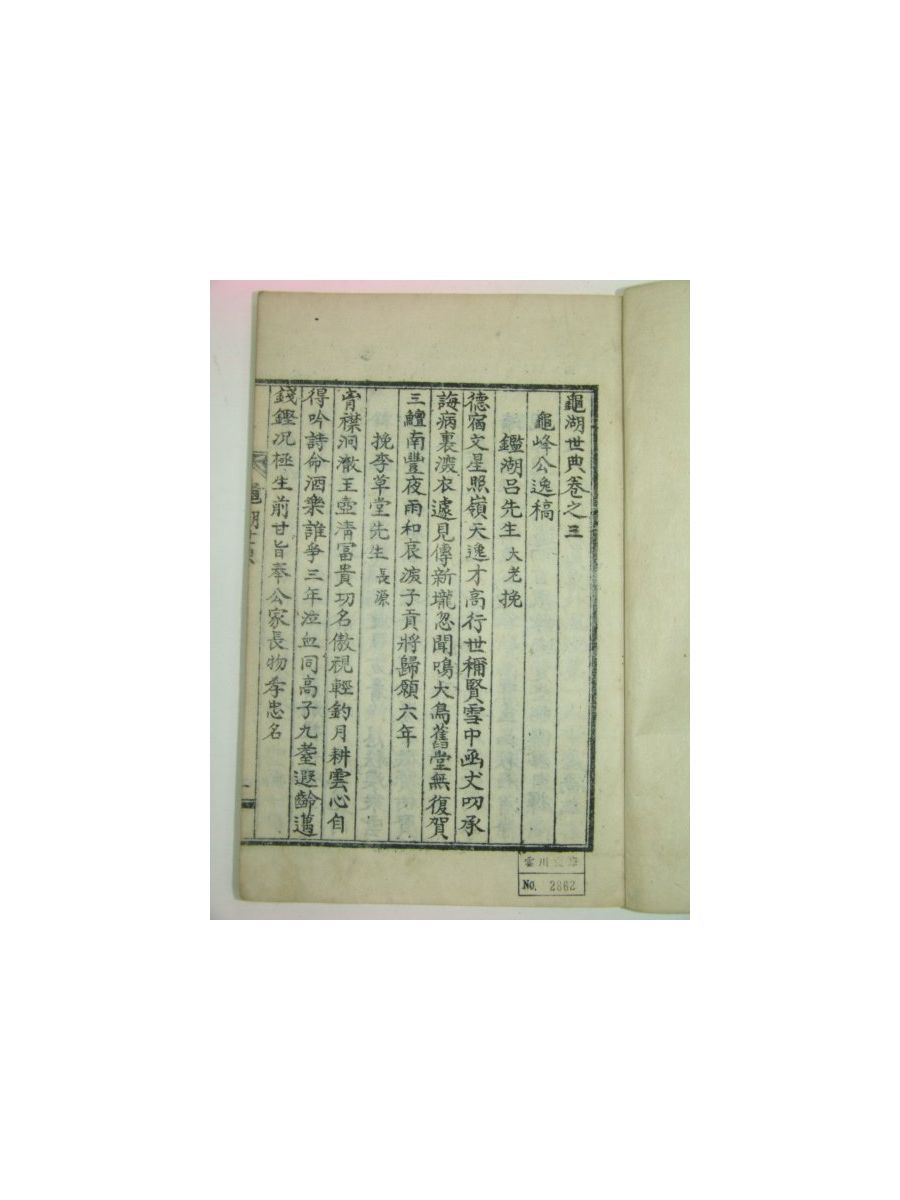 龜湖世典卷之三
龜峰公逸稿
鑑湖呂先生 大老 挽
德宿文星照嶺天逸才高行世稱賢雪中函丈叨承
誨病裏渡衣遽見傳新壠忽聞鳴大鳥舊堂無復賀
三鱣南豐夜雨和哀淚子貢將歸願六年
挽李草堂先生 長源
胷襟洞澈玉壺淸富貴功名傲視輕釣月耕雲心自
得吟詩命酒樂誰爭三年泣血同高子九耋遐齡邁
錢鏗况極生前甘旨奉公家長物孝忠名
龜湖世典
一
雲川文庫
No. 2862